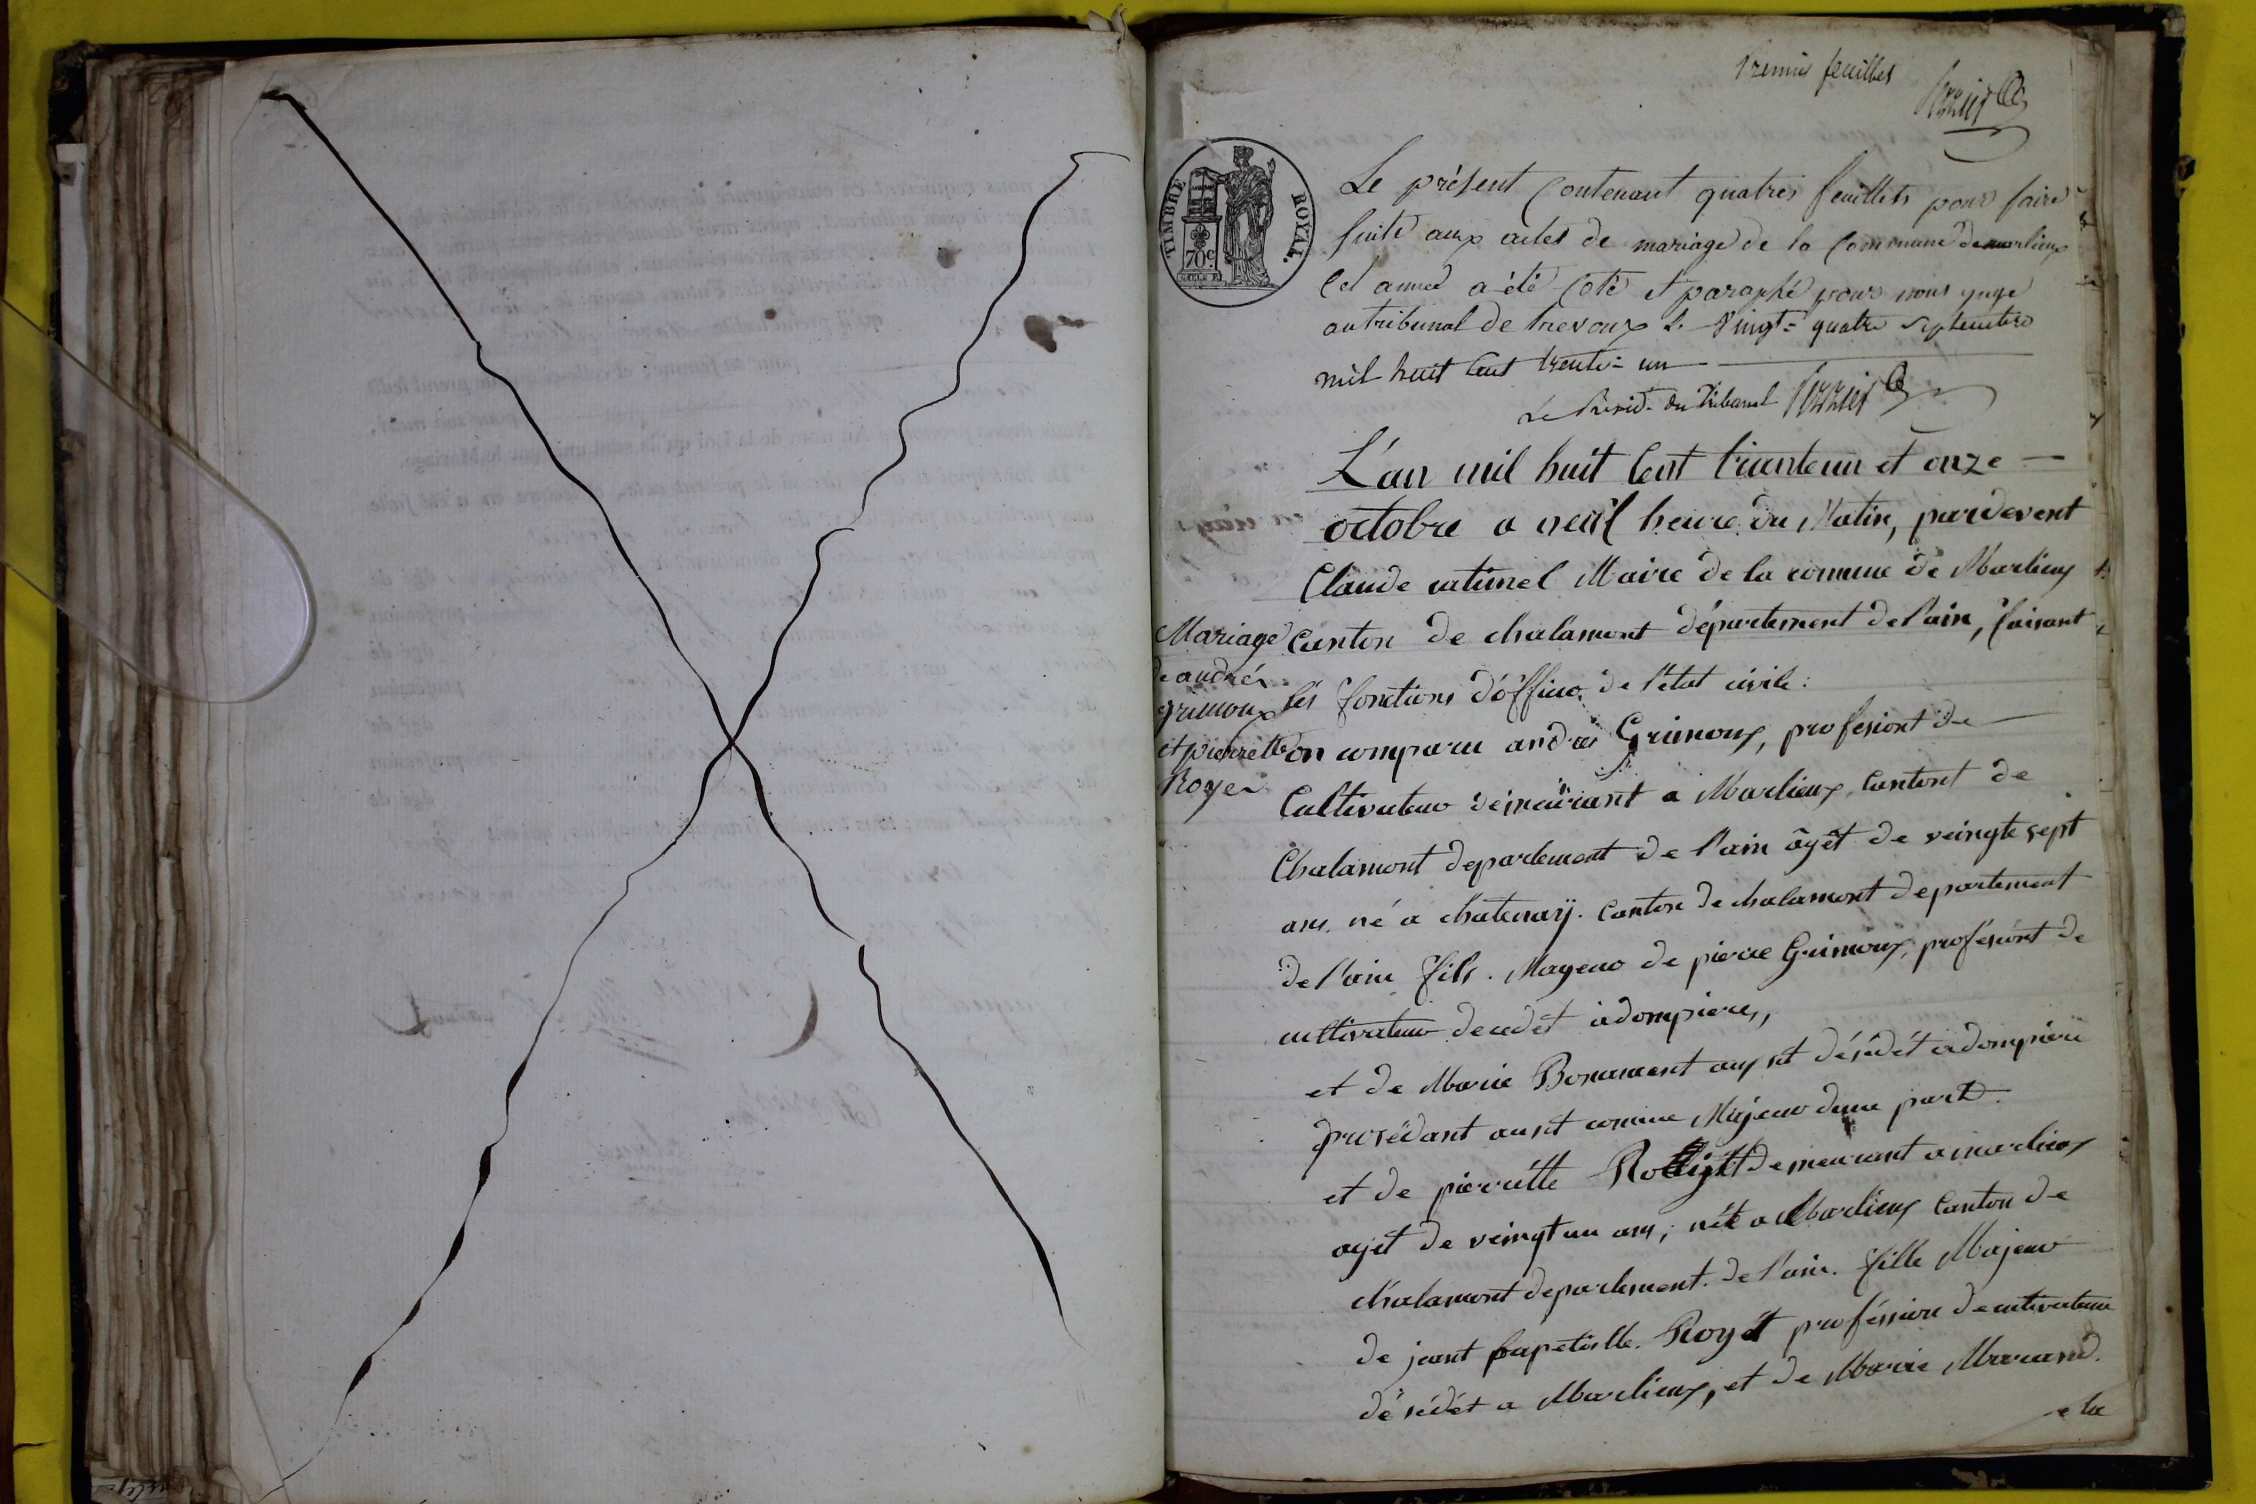 Premier feuillet
TIMBRE ROYAL.
70c.
Le présent Contenant quatres feuillets pour faire
suite aux actes de mariage de la Commune de marlieux
cet année a été coté et paraphé par nous juge
au tribunal de trevoux le vingt-quatre septembre
mil huit cent trente-un
Le Présid. du Tribunal
L'an mil huit Cent trianteun et onze
octobre a neuf heure du Matin, pardevent
Claude Maire de la comune de Marlieux
Canton de chalamont département de l'ain, faisant
les fonctions d'officier de l'état civile:
Mariage
de andré
grimoux
et pierrette
Royer
on comparu andré Grimoux, profesiont de
Cultivateur demeurant a Marlieux, Cantont de
Chalamont departement de l'ain âgêt de veingte sept
ans né a chatenay. Canton de chalamont departement
de l'ain fils. Mageur de pierre Grimoux, profesiont de
cultivateur decedét à dompiere,,
et de Marie Bonnament aussit désédét a dompiere
prosédant ausit comme Majeur dune part.
et de pierrette demeurant a marlieux
agét de veingt un ans; néte a Marlieux Canton de
chalamont departement. de l'ain. fille Majeur
de jeant bapetistte. Royét profession de cultivateur
désédét a Marlieux, et de Marie Marand.